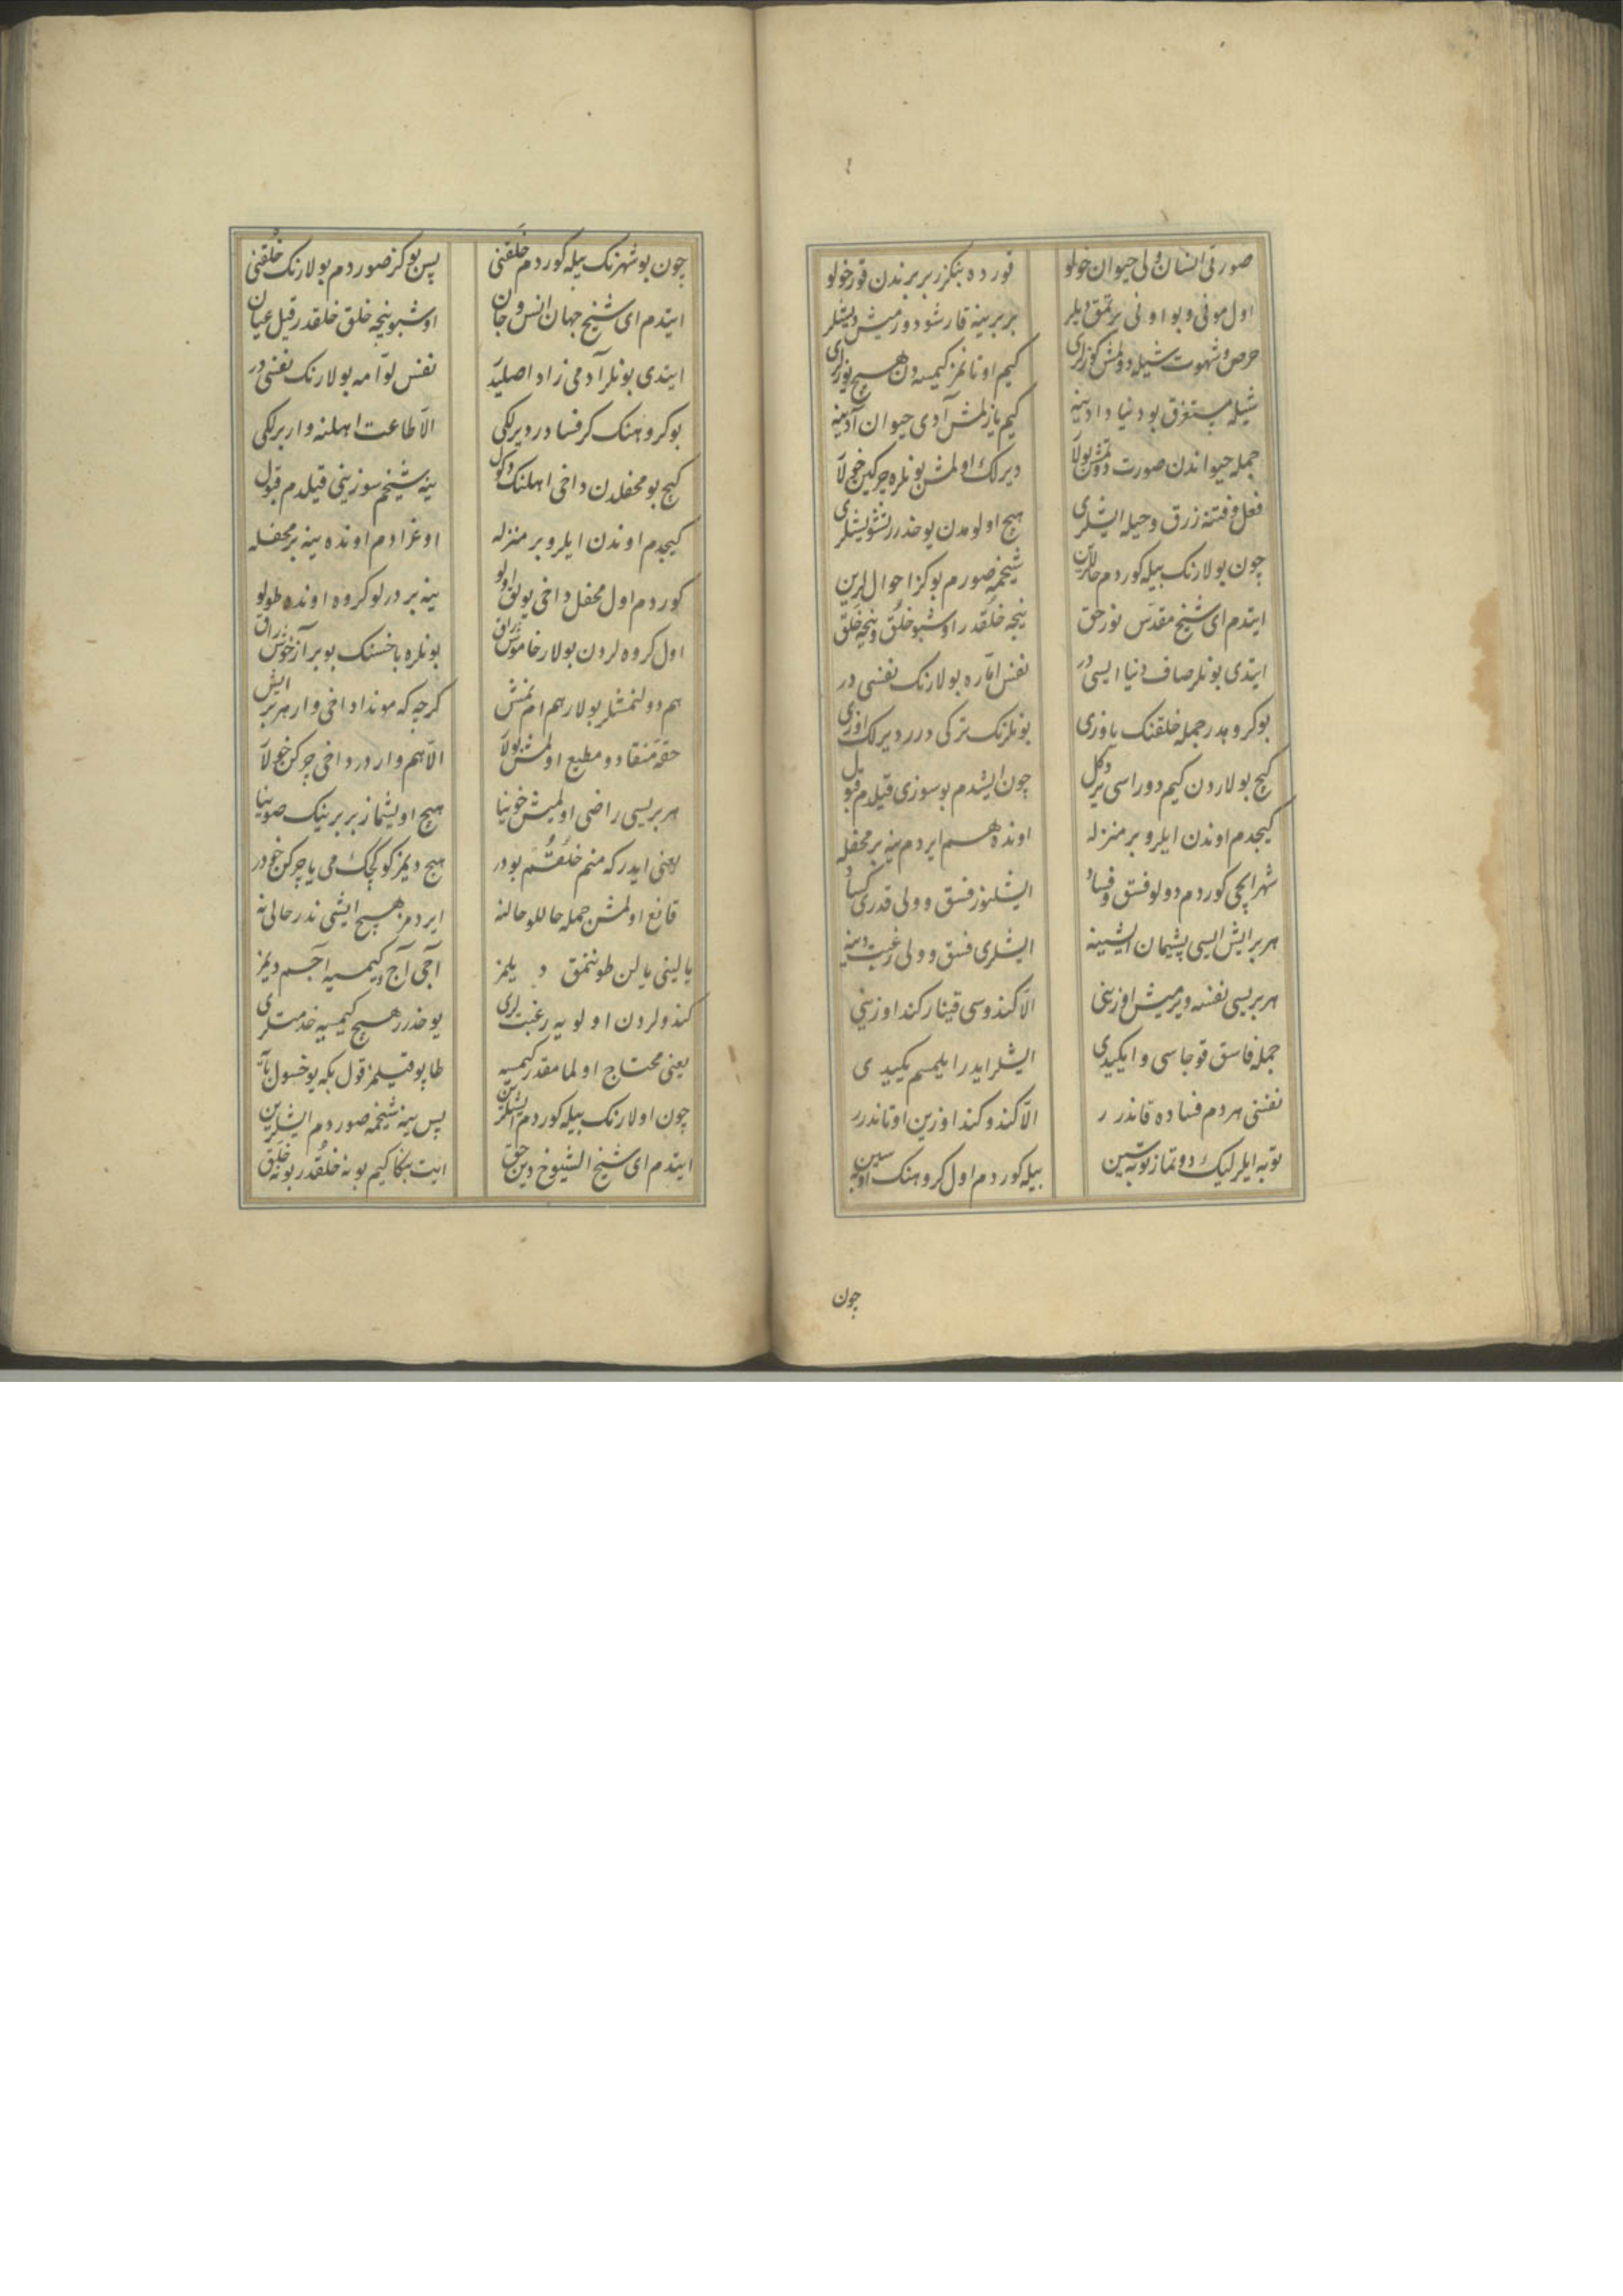 صورتی انسان ولی حیوان خولو قورده بنکزر بربرندن قورخولو
اول مونی و بو اونی یرتمق دیلر بربرینه قارشو دورمیش دیشلر
حرص و شهوت شیله دولمش کوزلری کیم اوتانمز کیمسه دن هیچ یوزلری
شیله مستغرق بو دنیا دادینه کیم یازلمش آدی حیوان آدینه
جمله حیواندن صورت دوتمش بولا دیرلک اولمش بونلره چرکین خولا
فعل و فتنه زرق و حیله ایشلری هیچ اولومدن یوخدرر تشویشلری
چون بولارنک بیله کوردم حاللرین شیخمه صورم بو کز احوال لرین
ایتدم ای شیخ مقدس نور حق نیجه خلقدر اوشبو خلق و نیجه خلق
ایتدی بونلر صاف دنیا ایسی در نفس اماره بولارنک نفسی در
بو کروهدر جمله خلقنک یاوزی بونلرنک ترکی درر دیرلک اوزی
کیج بولاردن کیم دوراسی یر دکل چون ایشدم بو سوزی قیلدم قبول
کیجدم اوندن ایلرو بر منزله اونده هم ایردم ینه بر محفله
شهر ایچی کوردم دولو فسق و فساد ایشلنوز فسق و ولی قدری کساد
هر بر ایش ایسی پشیمان ایشینه ایشلری فسق و ولی رغبت دینه
هر بریسی نفسه ویرمیش اوزینی الا کندوسی قینار کند اوزینی
جمله فاسق قوجاسی و ایکیدی ایشلر ایدر ایلمم یکیدی
نفسنی هر دم فساده قاندرر الا کندو کند اوزین اوتاندرر
توبه ایلر لیک دوتماز توبه سین بیله کوردم اول کروهنک اوبه سین
چون
چون بو شهرنک بیله کوردم خلقنی پس بو کز صوردم بولارنک خلقنی
ایتدم ای شیخ جهان انس و جان اوشبو نیجه خلق خلقدر قیل عیان
ایتدی بونلر آدمی زاد اصلیدر نفس لوامه بولارنک نفسی در
بو کروهنک کرفسادر دیرلکی الا طاعت اهلنه وار برلکی
کیج بو محفلدن داخی اهلنک دکل ینه شیخم سوزینی قیلدم قبول
کیجدم اوندن ایلرو بر منزله اوغرادم اونده ینه بر محفله
کوردم اول محفل داخی یولق اولو ینه بر درلو کروه اونده طولو
اول کروه لردن بولار خاموش راق بونلره باخسنک بو بر آز خوش راق
هم دولنمشلر بولار هم ایمنش کرچه که موندا داخی وار هر بر ایش
حقه منقاد و مطیع اولمش بولا الا هم واردر داخی چرکن خولا
هر بریسی راضی اولمیش خوینا هیچ اویشماز بربرینک صوینا
یعنی ایدر که منم خلقتم بودر هیچ دیمز کوکچک می یا چرکن خودر
قانع اولمش جمله حاللو حالنه ایردمز هیچ ایشی ندر حالی نه
یالینی یالن طوننمق دیلمز آجی آج کیمسیه آجم دیمز
کندولردن اولویه رغبتلری یوخدرر هیچ کیمسیه خدمتلری
یعنی محتاج اولمامقدر کیمسیه طاپو قیلمز قول بکه یوخسول بایه
چون اولارنک بیله کوردم ایشلرین پس ینه شیخمه صوردم ایشلرین
ایتدم ای شیخ الشیوخ دین حق ایت بکا کیم بو نه خلقدر بو نه خلق